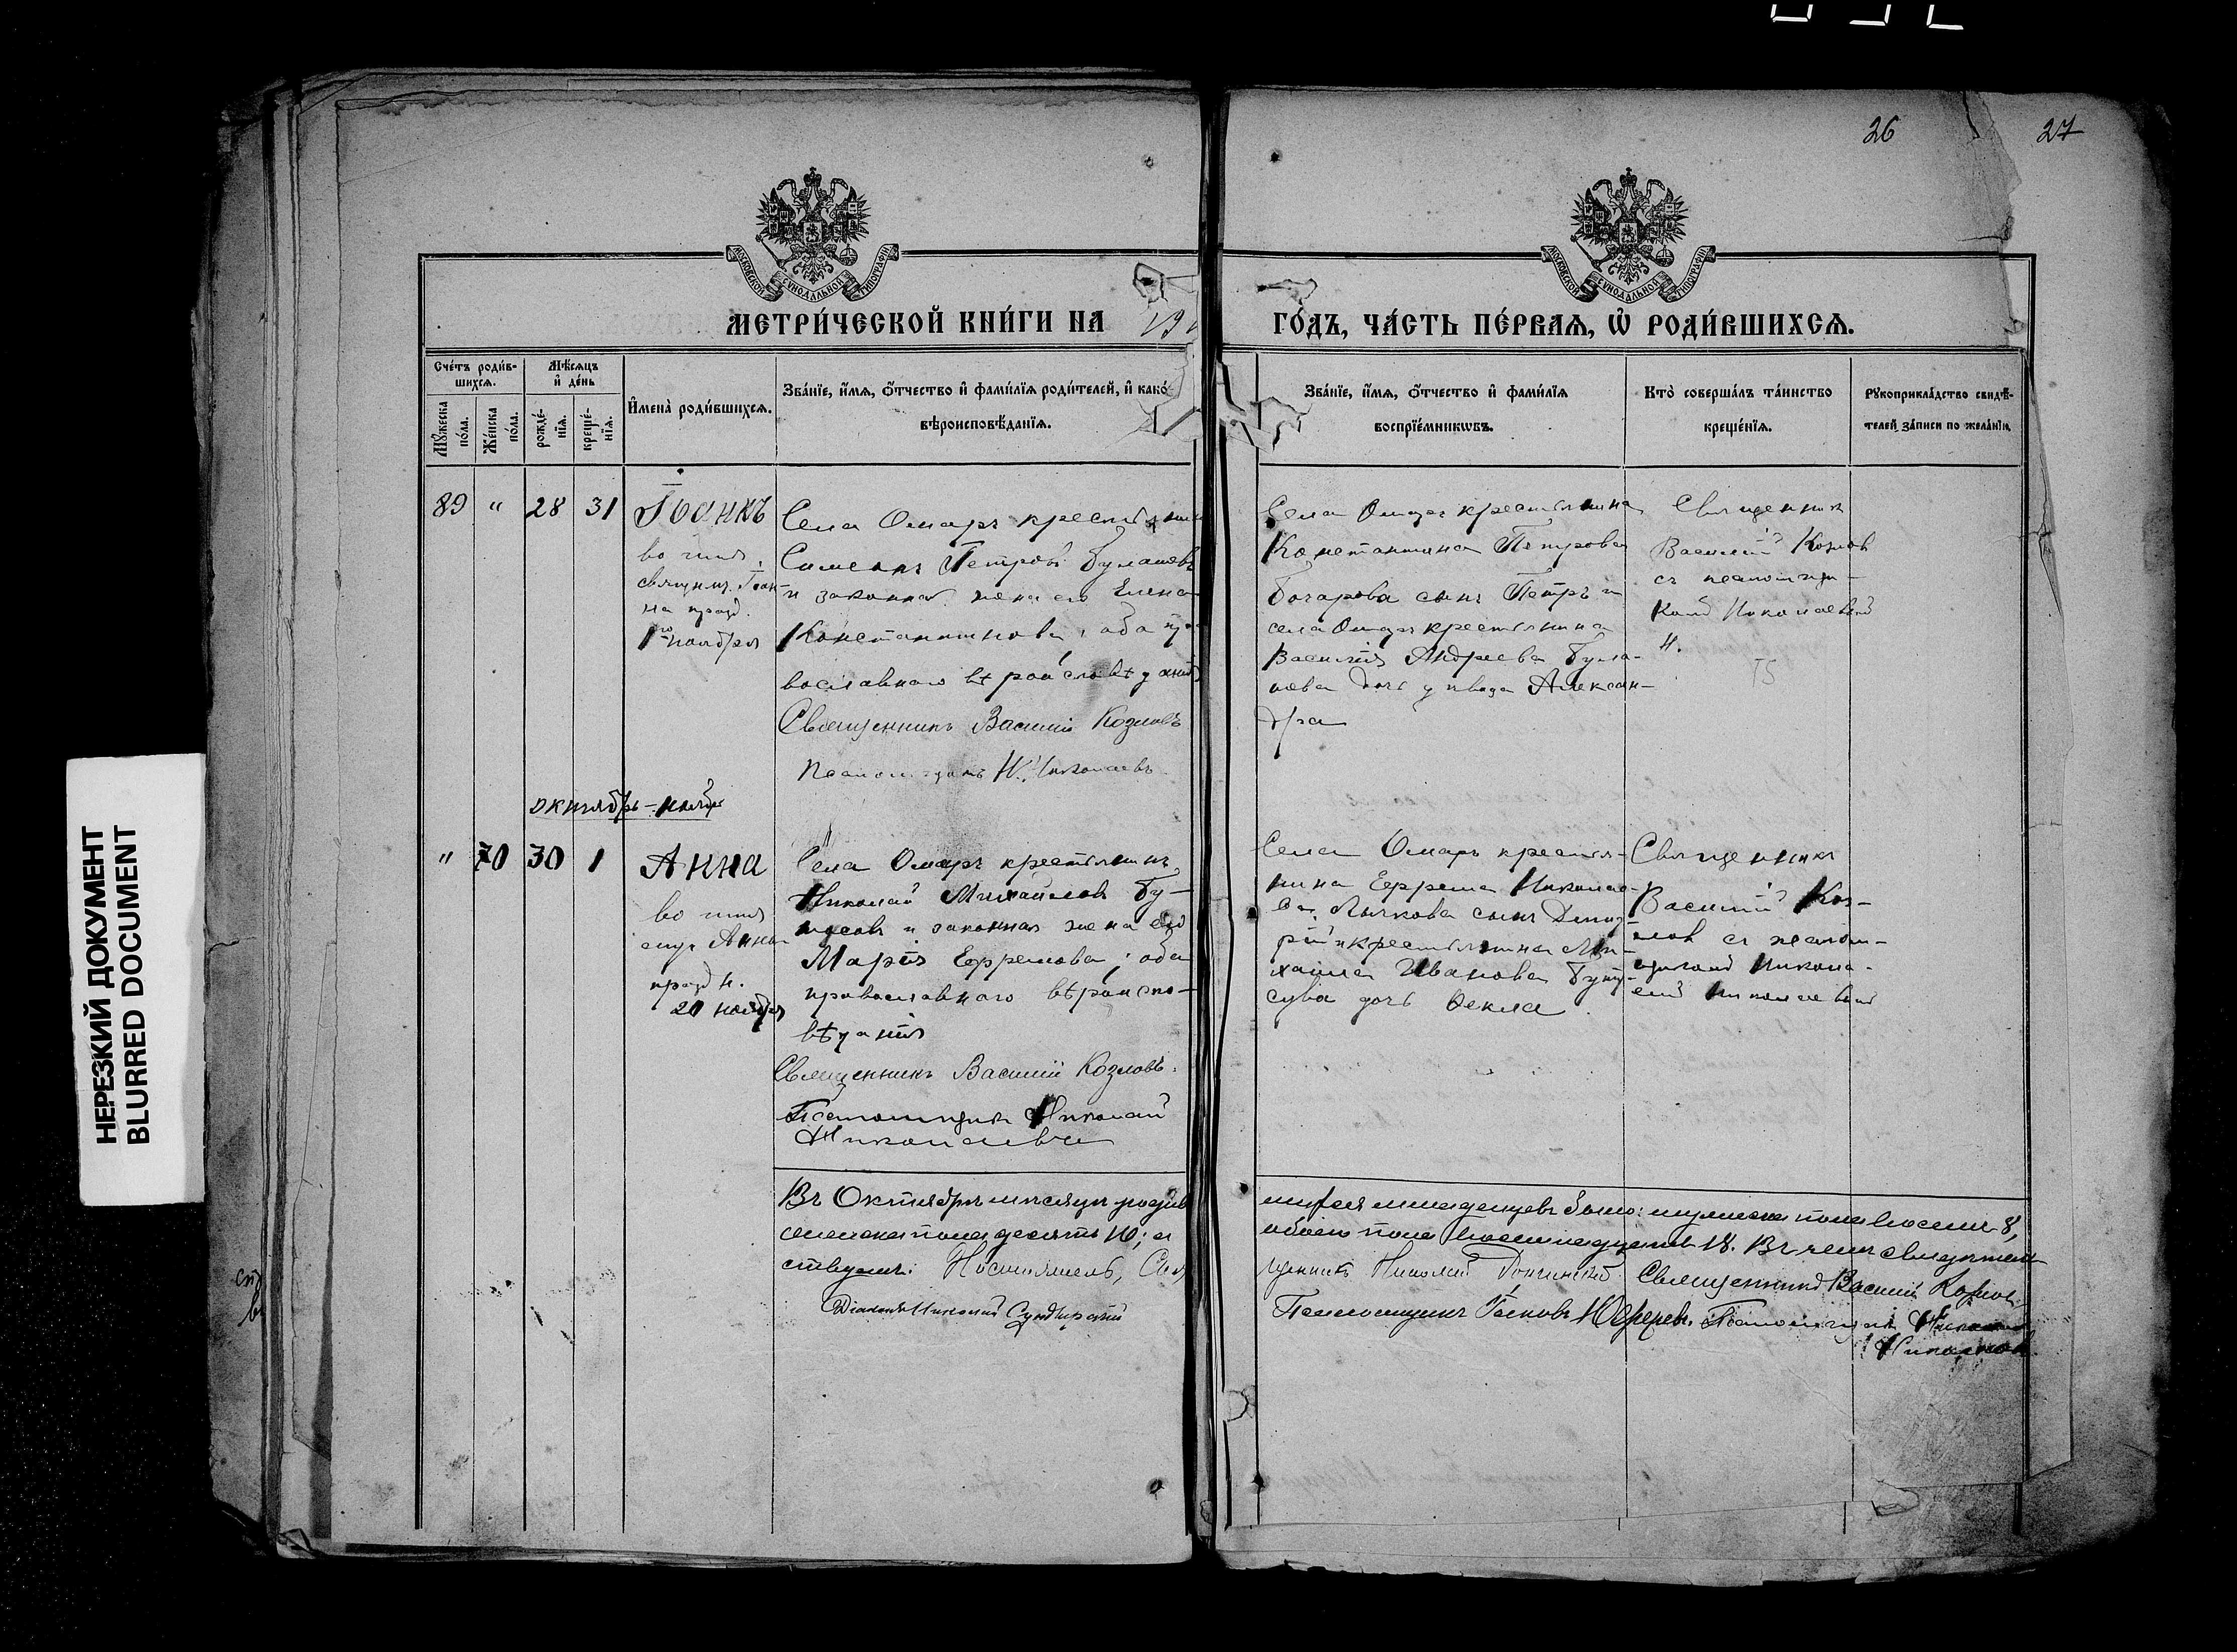 26
27
МОСКОВСКОЙ СѴНОДАЛЬНОЙ ТИПОГРАФІИ
МОСКОВСКОЙ СѴНОДАЛЬНОЙ ТИПОГРАФІИ
МЕТРИ́ЧЕСКОЙ КНИ́ГИ НА 191
ГО́ДЪ, ЧА́СТЬ ПЕ́РВАѦ, Ѡ҆ РОДИ́ВШИХСѦ.
Сче́тъ роди́в-
шихсѧ.
Мꙋжеска по́ла.
Же́нска по́ла.
Мѣ́сѧцъ и҆ де́нь
рожде́-
нїѧ.
креще́-
нїѧ.
И҆мена̀ роди́вшихсѧ.
Зва́нїе, и҆́мѧ, ѻ҆́тчество и҆ фами́лїѧ роди́телей, и҆ како́-
вѣроисповѣ́данїѧ.
Зва́нїе, и҆́мѧ, ѻ҆́тчество и҆ фами́лїѧ
воспрїе́мникѡвъ.
Кто̀ соверша́лъ та́инство
креще́нїѧ.
Рꙋкоприкла́дство свидѣ́-
телей за́писи по жела́нїю.
89 " 28 31
Іоаннъ
во имя
свящмч. Іоан-
на празд.
1го ноября
Села Омаръ крестьянин
Симеонъ Петровъ Булашевъ
и законная жена его Елена
Константинова, оба пра-
вославнаго вѣроисповѣданія
Священникъ Василій Козловъ
Псаломщикъ Н. Николаевъ
Села Омаръ крестьянина
Константина Петрова
Бочарова сынъ Петръ и
села Омаръ крестьянина
Василія Андреева Була-
шева дочь девица Алексан-
дра
Священникъ
Василій Козлов
съ псаломщи-
комъ Николаевымъ
Н.
октябрь - ноябрь
" 70 30 1
Анна
во имя
Анны
праздн.
20 ноября
Села Омаръ крестьянинъ
Николай Михайлов Бу-
и законная жена его
Марія Ефремова; оба
православнаго вѣроиспо-
вѣданія
Священникъ Василій Козловъ.
Псаломщикъ Николай
Николаевъ
Села Омаръ крестья-
нина Ефрема Николае-
ва Лычкова сынъ Дмит-
рій и крестьянина Ми-
хаила Иванова
дочь Ѳекла
Священникъ
Василій Коз-
лов съ псалом-
щикомъ Никола-
емъ Николаевымъ
Въ Октябрѣ мѣсяцѣ родив
шихся младенцевъ было: мужеска пола восемь 8,
женска пола десять 10; а
обоего пола восемнадцать 18. Въ чемъ свидѣтель
ствуемъ: Настоятель, Свя
щенникъ Николай Священникъ Василій Козлов
Діаконъ Николай
Псаломщикъ Іаковъ Псаломщикъ Николай
Николаевъ
НЕРЕЗКИЙ ДОКУМЕНТ
BLURRED DOCUMENT